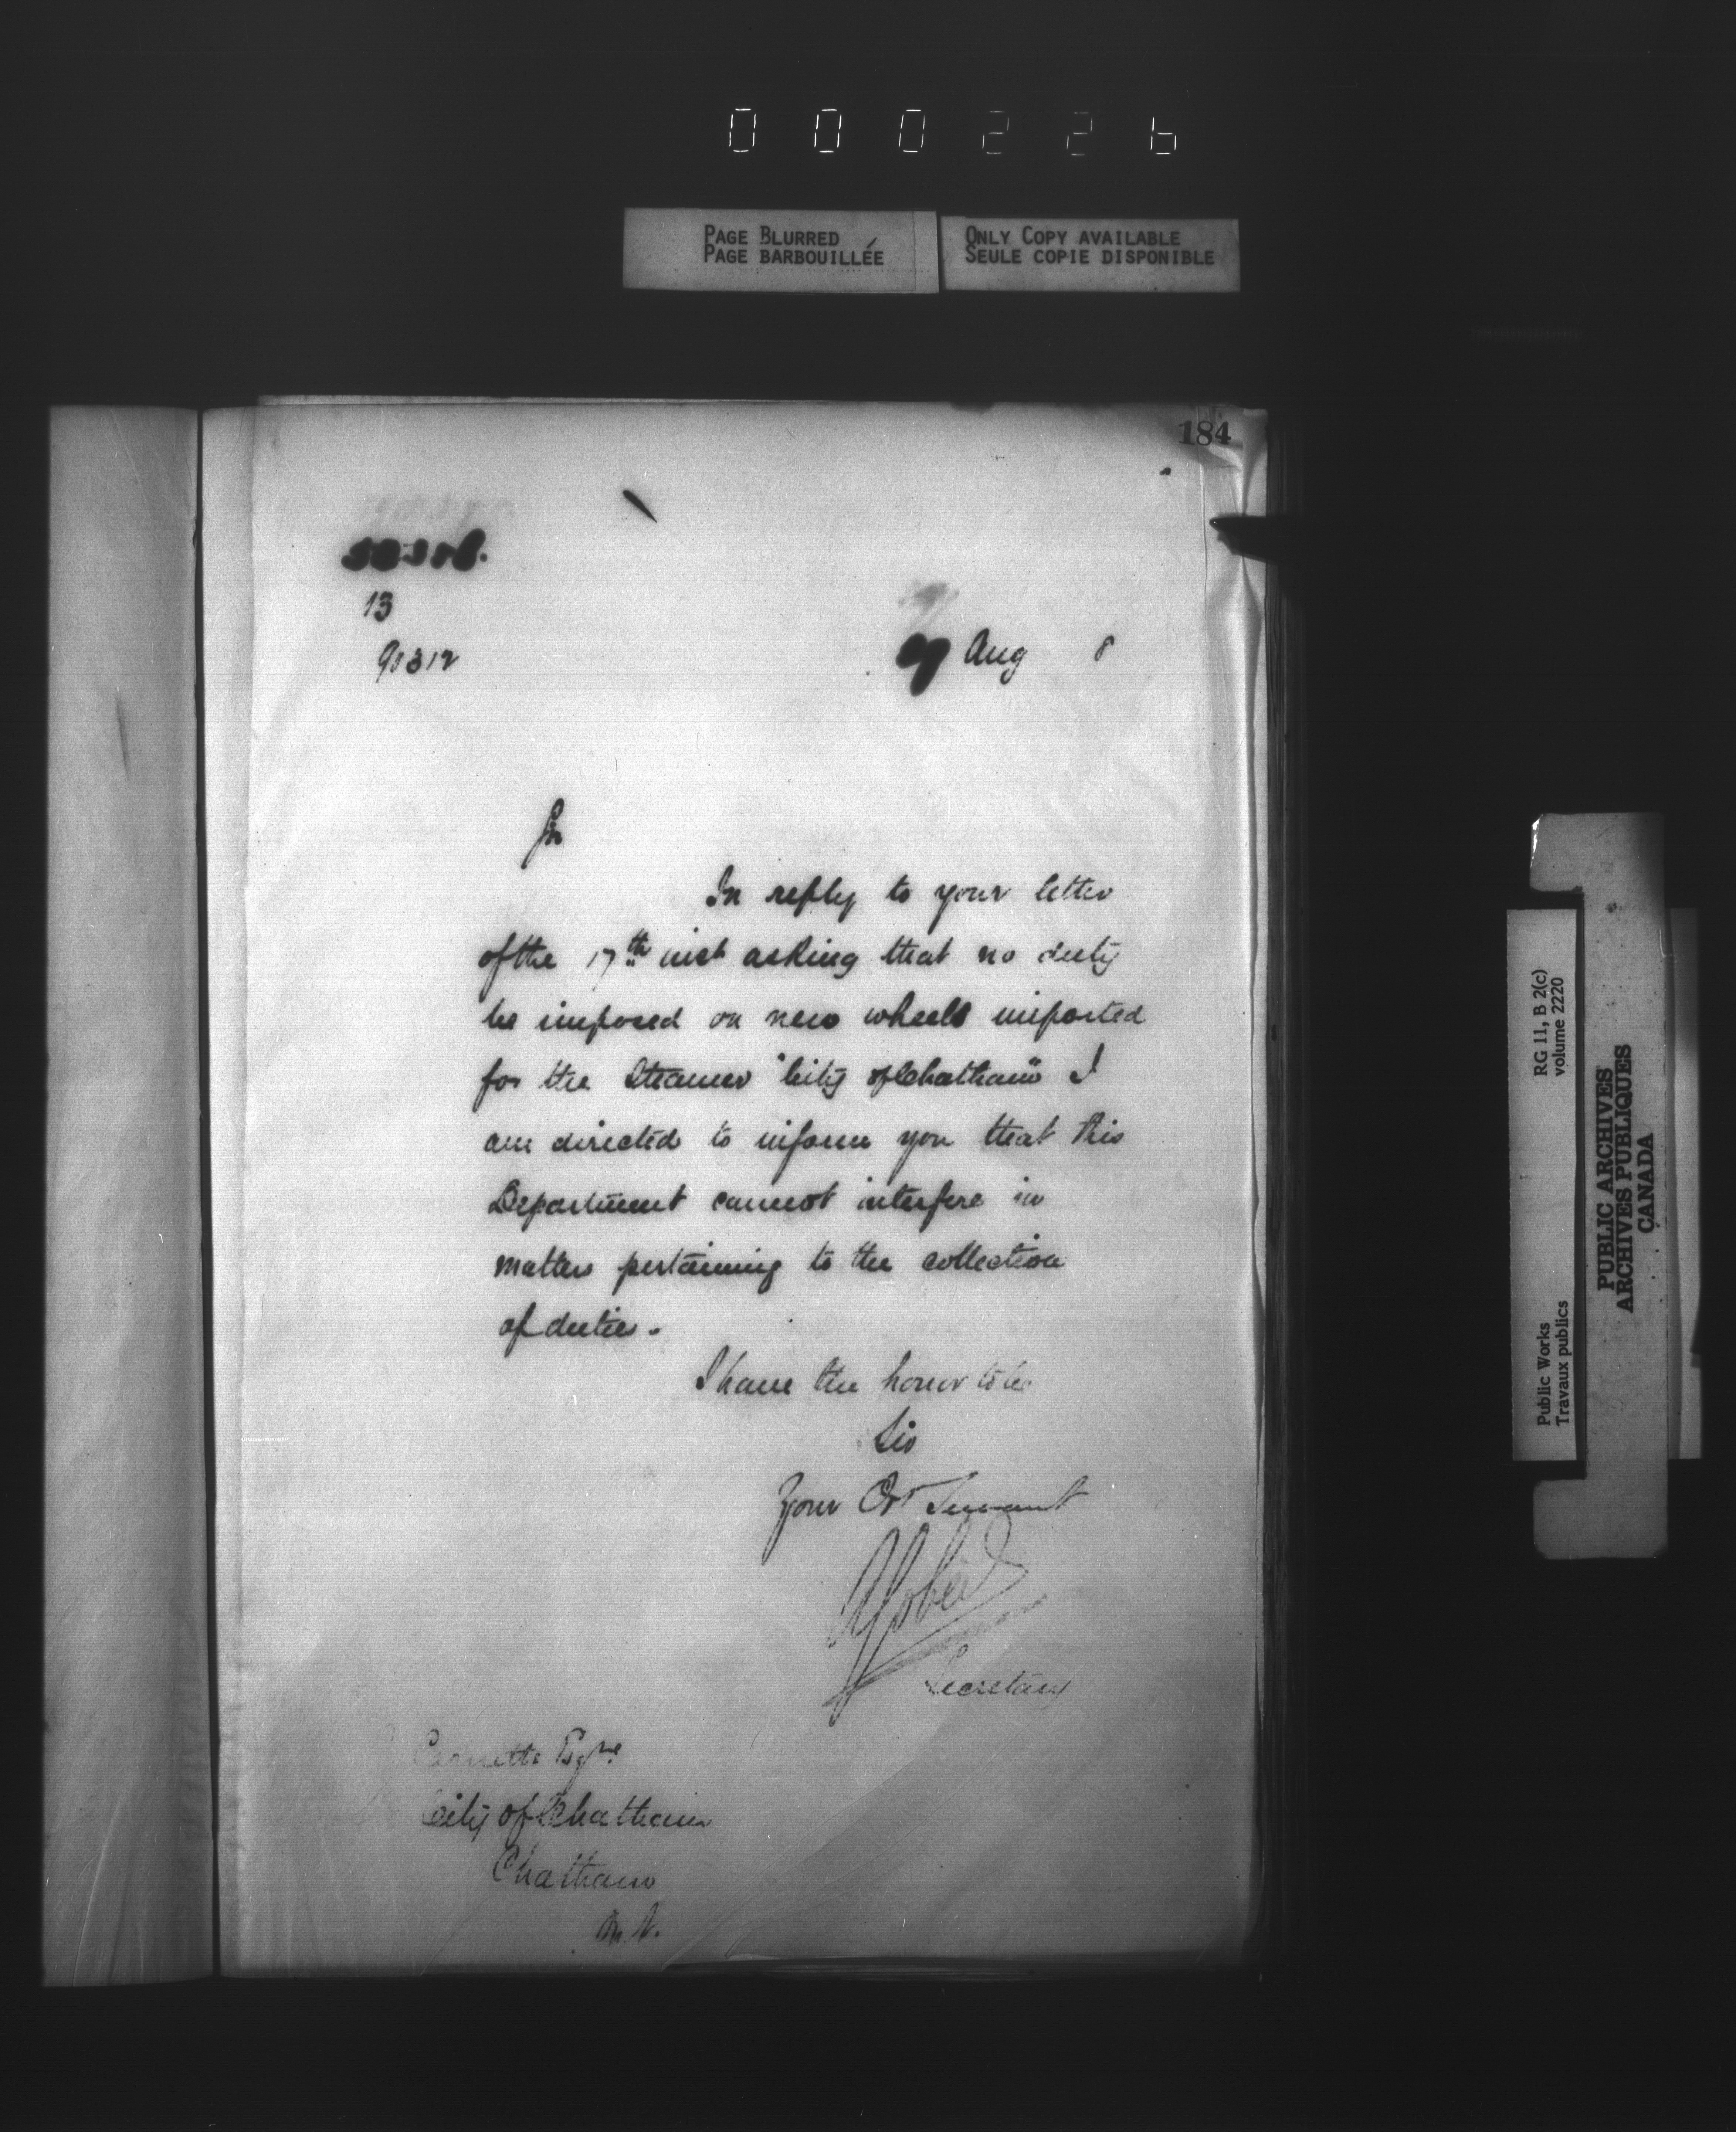 000226
PAGE BLURRED
PAGE BARBOUILLÉE
ONLY COPY AVAILABLE
SEULE COPIE DISPONIBLE
184
13
90312
Aug 8
Sir
In reply to your letter
of the 17th inst asking that no duty
be imposed on new wheels imported
for the Steamer "City of Chatham" I
am directed to inform you that this
Department cannot interfere in
matters pertaining to the collection
of duties.
I have the honor to be
Sir
Your Obt Servant
Secretary
Esqre
City of Chatham
Chatham
RG 11, B 2(c)
volume 2220
Public Works
Travaux publics
PUBLIC ARCHIVES
ARCHIVES PUBLIQUES
CANADA